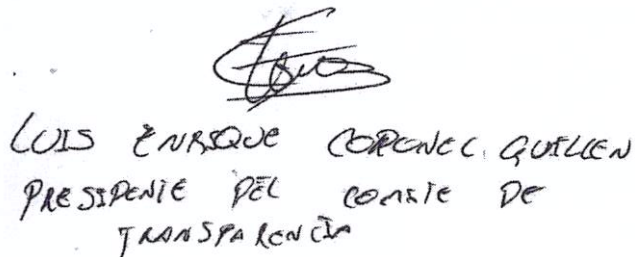 LUIS ENRIQUE CORONEL GUILLEN
PRESIDENTE DEL COMITE DE
TRANSPARENCIA